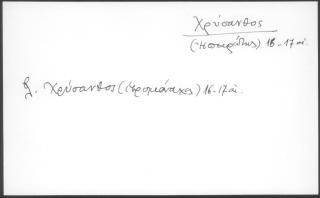 Χρύσανθος
(Ηπειρώτης) 16-17 αι.
βλ. Χρύσανθος (ιερομόναχος) 16-17 αι.